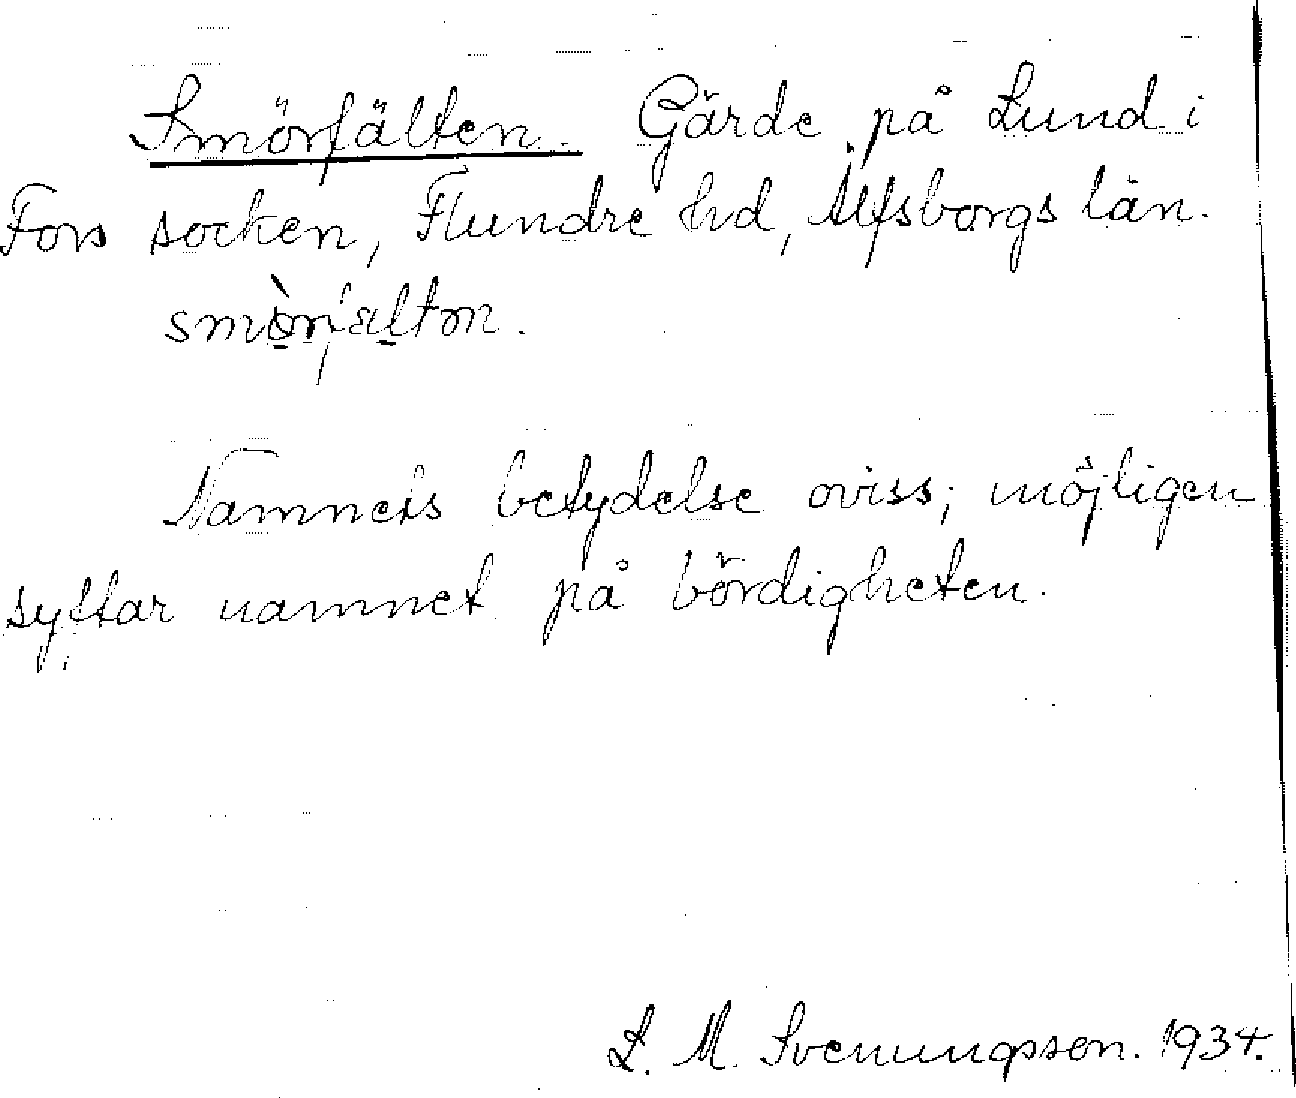 Smörfälten. Gärde på Lund i
Fors socken, Flundre hd, Älfsborgs län.
Namnets betydelse oviss; möjligen
syftar namnet på bördigheten.
L. M. Svenungsson. 1934.